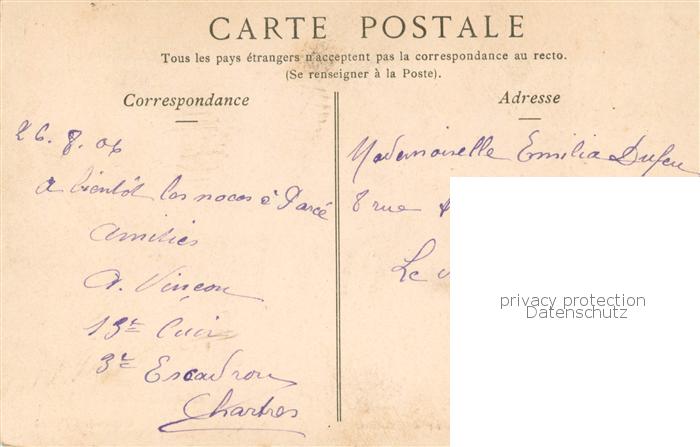 CARTE POSTALE
Tous les pays étrangers n'acceptent pas la correspondance au recto.
(Se renseigner à la Poste).
Correspondance
Adresse
26. 8. 06
A bientôt les noces à Parcé
Amitiés
A. Vinçon
13e Cuir
3e Escadron
Chartres
Mademoiselle Emilia Dufeu
8 rue
Le
privacy protection
Datenschutz